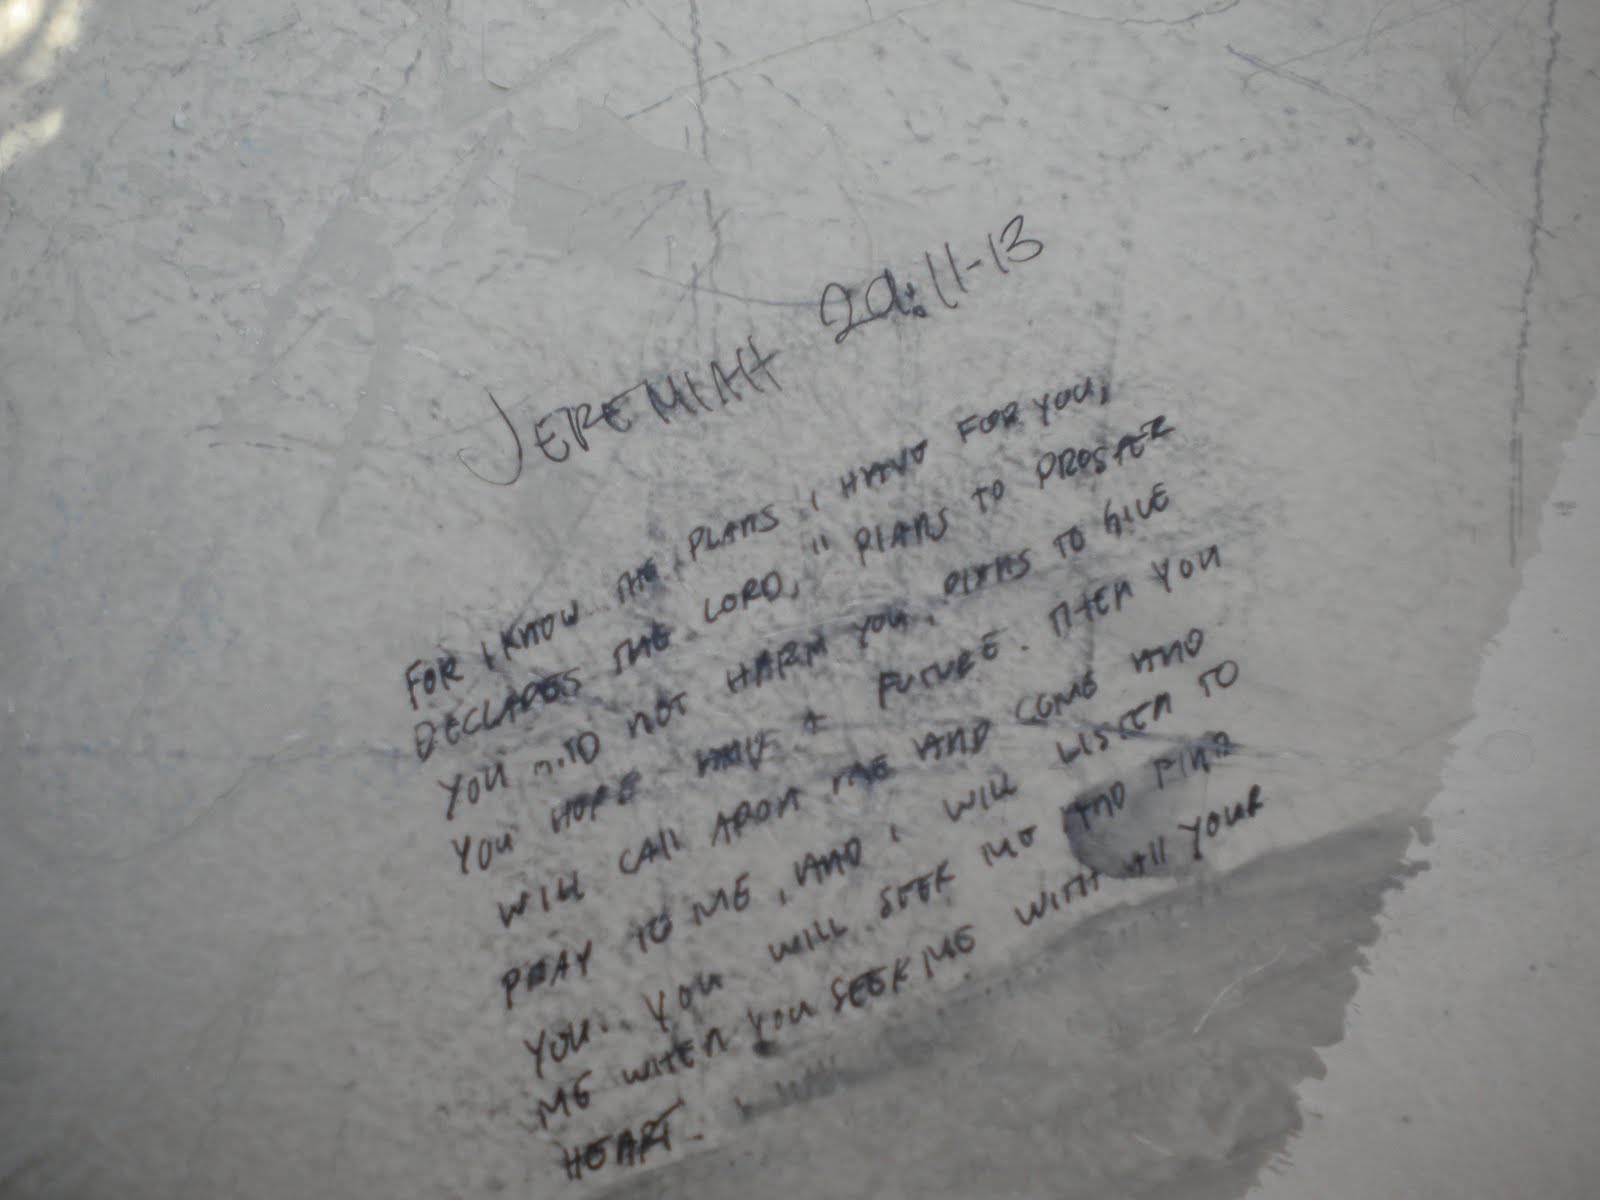 JEREMIAH 29:11-13
FOR I KNOW THE PLANS I HAVE FOR YOU,
DECLARES THE LORD, " PLANS TO PROSPER
YOU ... TO NOT HARM YOU, PLANS TO GIVE
YOU HOPE AND A FUTURE. THEN YOU
WILL CALL APON ME AND COME AND
PRAY TO ME, AND I WILL LISTEN TO
YOU.. YOU WILL SEEK ME AND FIND
ME WHEN YOU SEEK ME WITH All YOUR
HEART.